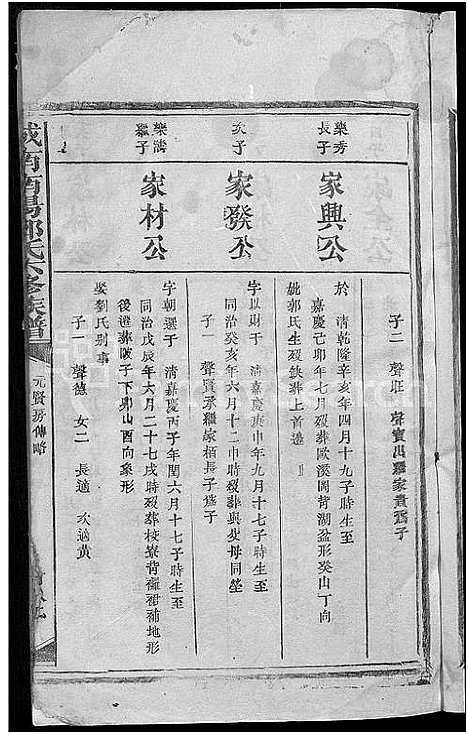 樂秀
長子
家興公
於　清乾隆辛亥年四月十九子時生至
嘉慶己卯年七月歿葬歐溪岡背湖盆形癸山丁向
妣郭氏生歿缺葬上首邊
子二　聲旺　聲寶出繼家貴為子
次子
家發公
字以財于　清嘉慶庚申年九月十七子時生至
同治癸亥年六月十二申時歿葬與父母同塋
子一　聲賢承繼家栢長子為子
樂濤
繼子
家材公
字朝選于　清嘉慶丙子年閏六月十七子時生至
同治戊辰年六月二十七戌時歿葬校寮背襬裙補地形
後遷葬陂子下卯山酉向象形
娶劉氏别事
子一　聲德　女二　長適　次適黃
氏六修族譜
元賢房傳略